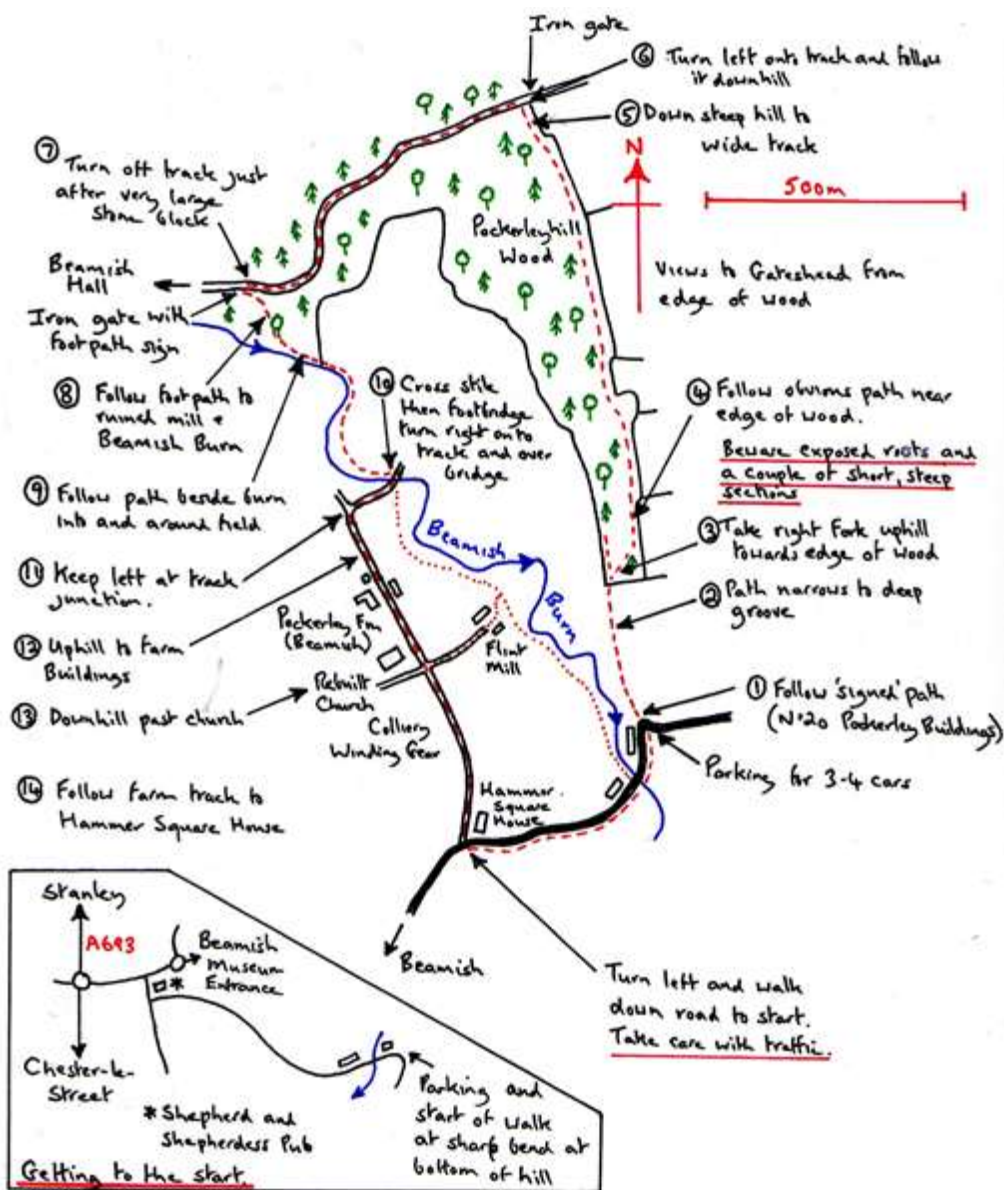 Iron gate
⑥ Turn left onto track and follow
it downhill
⑤ Down steep hill to
wide track
N
500m
⑦ Turn off track just
after very large
Stone block
Pockerleyhill
Wood
Views to Gateshead from
edge of wood
Beamish
Hall
Iron gate with
footpath sign
⑧ Follow footpath to
ruined mill +
Beamish Burn
⑩ Cross stile
then footbridge
turn right onto
track and over
bridge
④ Follow obvious path near
edge of wood.
Beware exposed roots and
a couple of short, steep
sections
⑨ Follow path beside burn
into and around field
③ Take right fork uphill
towards edge of wood
Beamish
Burn
⑪ Keep left at track
junction.
② Path narrows to deep
groove
Pockerley Fm
(Beamish)
⑫ Uphill to farm
Buildings
Flint
Mill
Rebuilt
Church
⑬ Downhill past church
① Follow 'signed' path
(Nº20 Pockerley Buildings)
Colliery
Winding Gear
Parking for 3-4 cars
⑭ Follow farm track to
Hammer Square House
Hammer
Square
House
Beamish
Turn left and walk
down road to start.
Take care with traffic.
Stanley
A693
Beamish
Museum
Entrance
*
Chester-le-
Street
* Shepherd and
Shepherdess Pub
Parking and
start of walk
at sharp bend at
bottom of hill
Getting to the start.